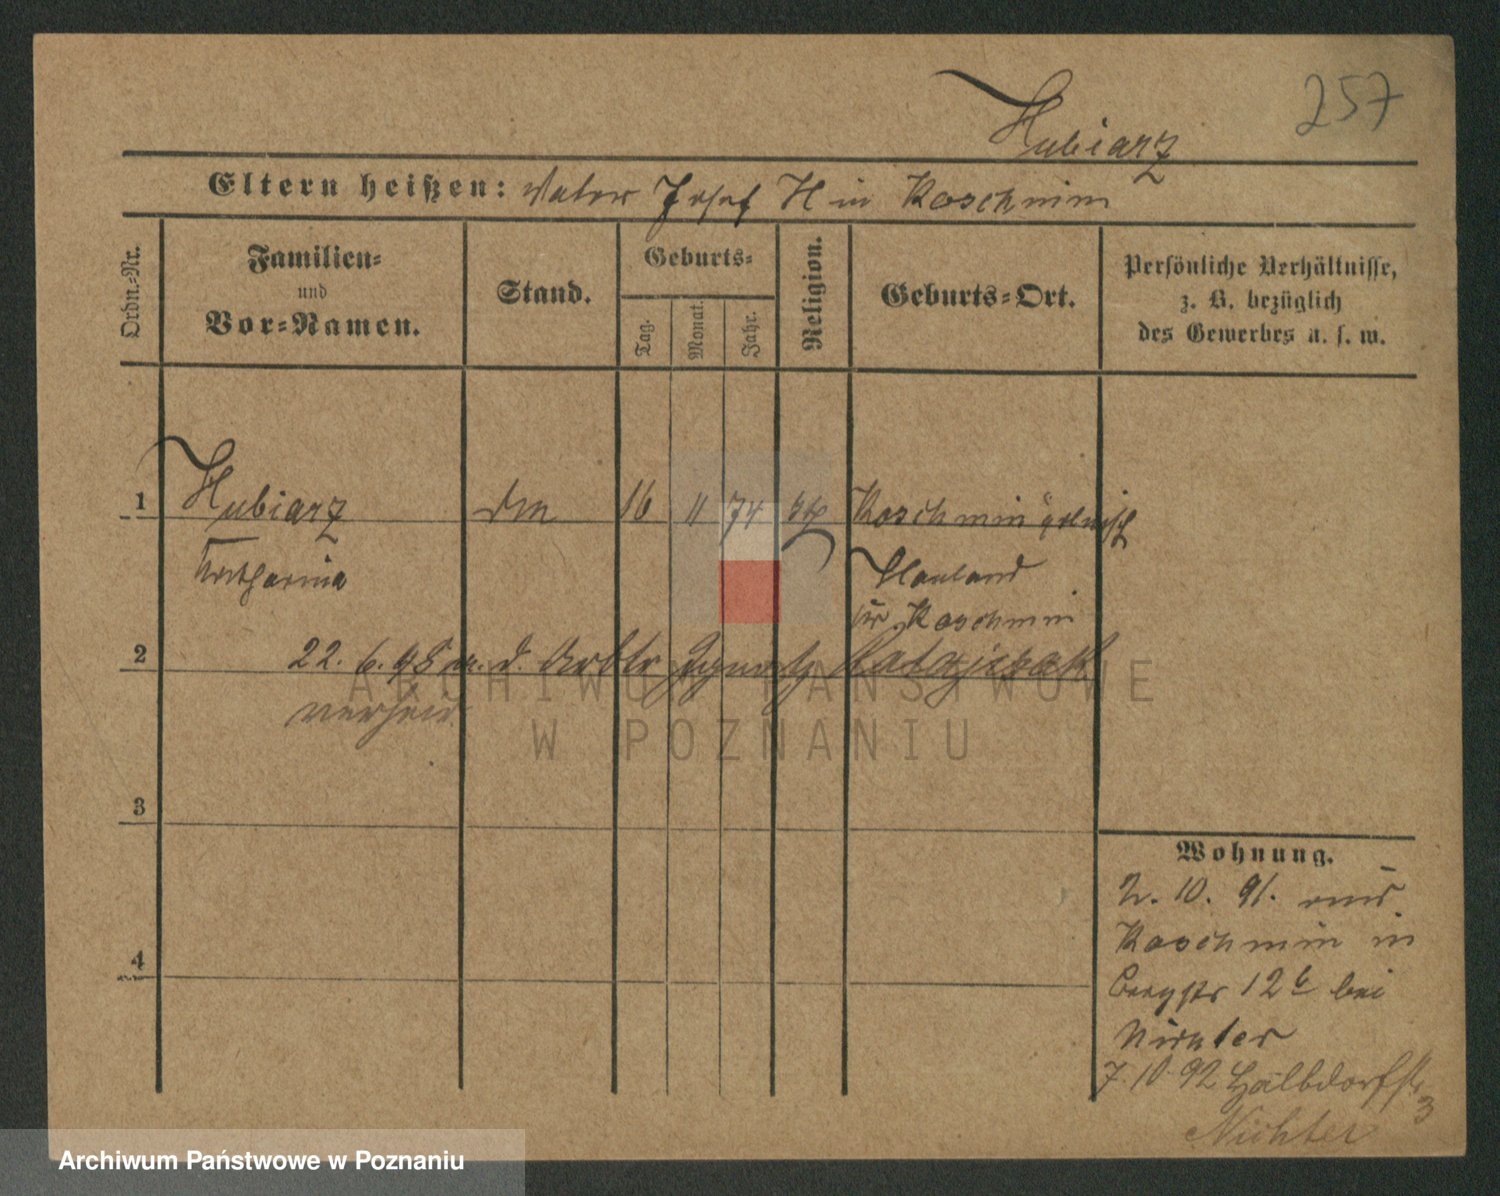 257
Hubiarz
Eltern heißen: Vater Josef H in Koschmin
Ordn.-Nr.
Familien-
und
Vor-Namen.
Stand.
Geburts-
Tag.
Monat.
Jahr.
Religion.
Geburts-Ort.
Persönliche Verhältnisse,
z. B. bezüglich
des Gewerbes u. s. w.
1 Hubiarz 16 11 74 kth Koschmin
Katharina Hauland
Koschmin
2 22. 6. 98 m. d. Arbtr Ignatz Ratajczak
verheir.
3
4
Wohnung.
2. 10. 91. aus
Koschmin in
Bergstr 12b bei
Richter
7. 10. 92 Halbdorfstr
3
Richter
ARCHIWUM PAŃSTWOWE
W POZNANIU
Archiwum Państwowe w Poznaniu